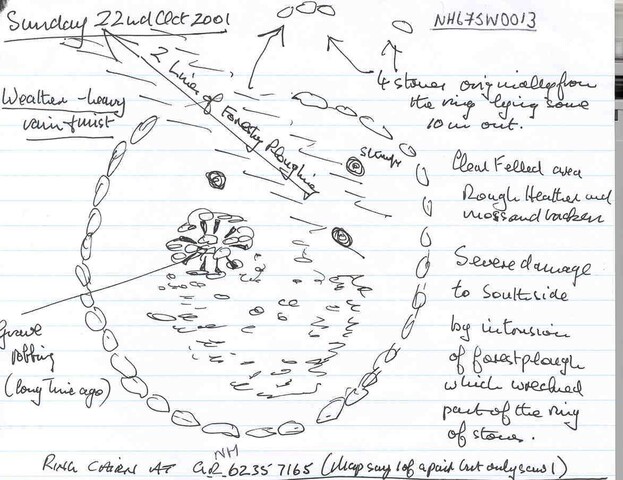 Sunday 22nd Oct 2001
NH67SW0013
4 stones originally from
the ring lying some
10m out.
Weather - heavy
rain & mist
2 Lines of Forestry Ploughing
stumps
Clear Felled area
Rough Heather and
moss and bracken
Severe damage
to South side
by intrusion
of forest plough
which wrecked
part of the ring
of stones.
Grave
robbing
(long time ago)
NH
RING CAIRN AT GR 62357165 (Map says 1 of a pair but only saw 1)